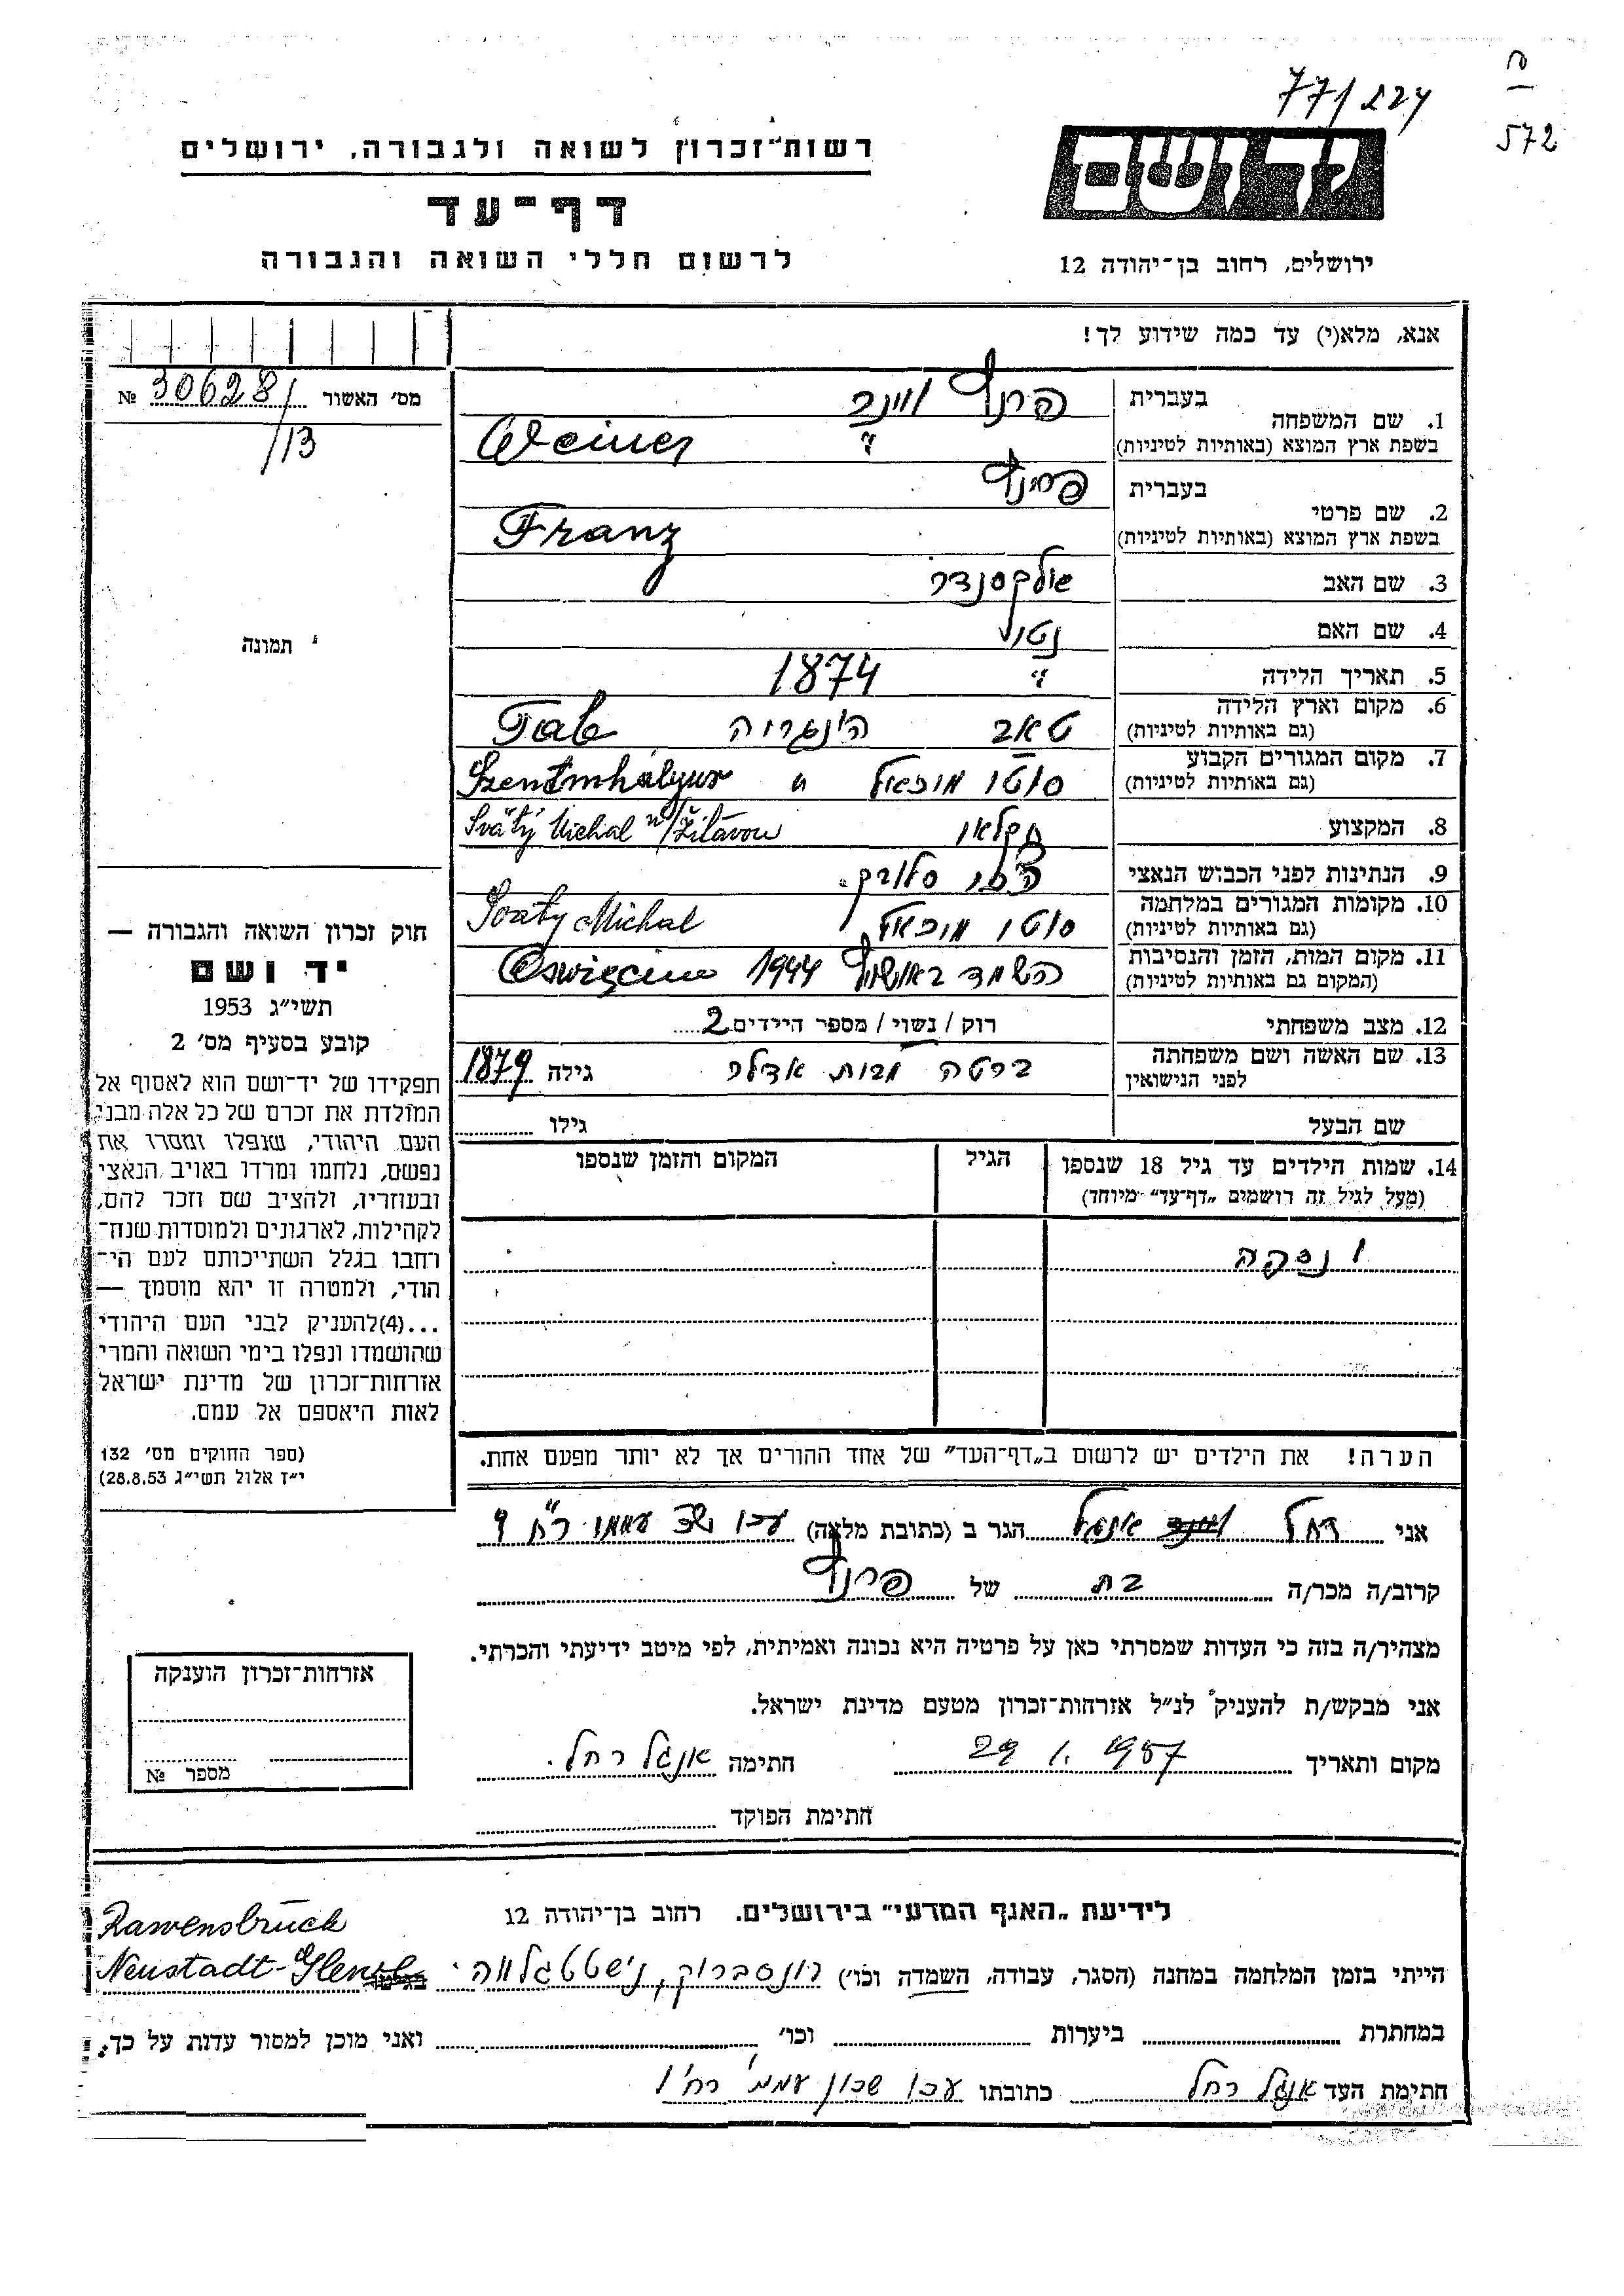 77/224
572
רשות־זכרון לשואה ולגבורה, ירושלים
דף־עד
לרשום חללי השואה והגבורה
יד ושם
ירושלים, רחוב בן־יהודה 12
אנא, מלא(י) עד כמה שידוע לך!
מס׳ האשור 30628/ №
/13
תמונה
1. שם המשפחה
בעברית פרנץ ווינר
בשפת ארץ המוצא (באותיות לטיניות) Weiner
2. שם פרטי
בעברית פרנץ
בשפת ארץ המוצא (באותיות לטיניות) Franz
3. שם האב אלכסנדר
4. שם האם
5. תאריך הלידה 1874
6. מקום וארץ הלידה טאב הונגריה Tab
(גם באותיות לטיניות)
7. מקום המגורים הקבוע מיכאל Szentmihályur
(גם באותיות לטיניות)
8. המקצוע חקלאי Svätý Michal n/Žitavou
9. הנתינות לפני הכבוש הנאצי
10. מקומות המגורים במלחמה מיכאל Svaty Michal
(גם באותיות לטיניות)
11. מקום המות, הזמן והנסיבות 1944 Oswięcim
(המקום גם באותיות לטיניות)
12. מצב משפחתי רוק / נשוי / מספר הילדים 2
13. שם האשה ושם משפחתה ברטה מבית אדלר גילה 1879
לפני הנישואין
שם הבעל גילו
14. שמות הילדים עד גיל 18 שנספו הגיל המקום והזמן שנספו
(מעל לגיל זה רושמים „דף־עד״ מיוחד)
הערה! את הילדים יש לרשום ב„דף־העד״ של אחד ההורים אך לא יותר מפעם אחת.
חוק זכרון השואה והגבורה —
יד ושם
תשי״ג 1953
קובע בסעיף מס׳ 2
תפקידו של יד־ושם הוא לאסוף אל
המולדת את זכרם של כל אלה מבני
העם היהודי, שנפלו ומסרו את
נפשם, נלחמו ומרדו באויב הנאצי
ובעוזריו, ולהציב שם וזכר להם,
לקהילות, לארגונים ולמוסדות שנח־
רחבו בגלל השתייכותם לעם הי־
הודי, ולמטרה זו יהא מוסמך —
...(4)להעניק לבני העם היהודי
שהושמדו ונפלו בימי השואה והמרי
אזרחות־זכרון של מדינת ישראל
לאות היאספם אל עמם.
(ספר החוקים מס׳ 132
י״ז אלול תשי״ג 28.8.53)
אני רחל אנגל הגר ב (כתובת מלאה) עכו
קרוב/ה מכר/ה בת של פרנץ
מצהיר/ה בזה כי העדות שמסרתי כאן על פרטיה היא נכונה ואמיתית, לפי מיטב ידיעתי והכרתי.
אני מבקש/ת להעניק לנ״ל אזרחות־זכרון מטעם מדינת ישראל.
מקום ותאריך 29 1. 1957 חתימה אנגל רחל.
חתימת הפוקד
אזרחות־זכרון הוענקה
מספר №
לידיעת „האגף המדעי״ בירושלים. רחוב בן־יהודה 12
Rawensbrück
הייתי בזמן המלחמה במחנה (הסגר, עבודה, השמדה וכו׳) רונסברוק, Neustadt-
במחתרת ביערות וכו׳ ואני מוכן למסור עדות על כך.
חתימת העד אנגל רחל כתובתו עכו שכון עממי